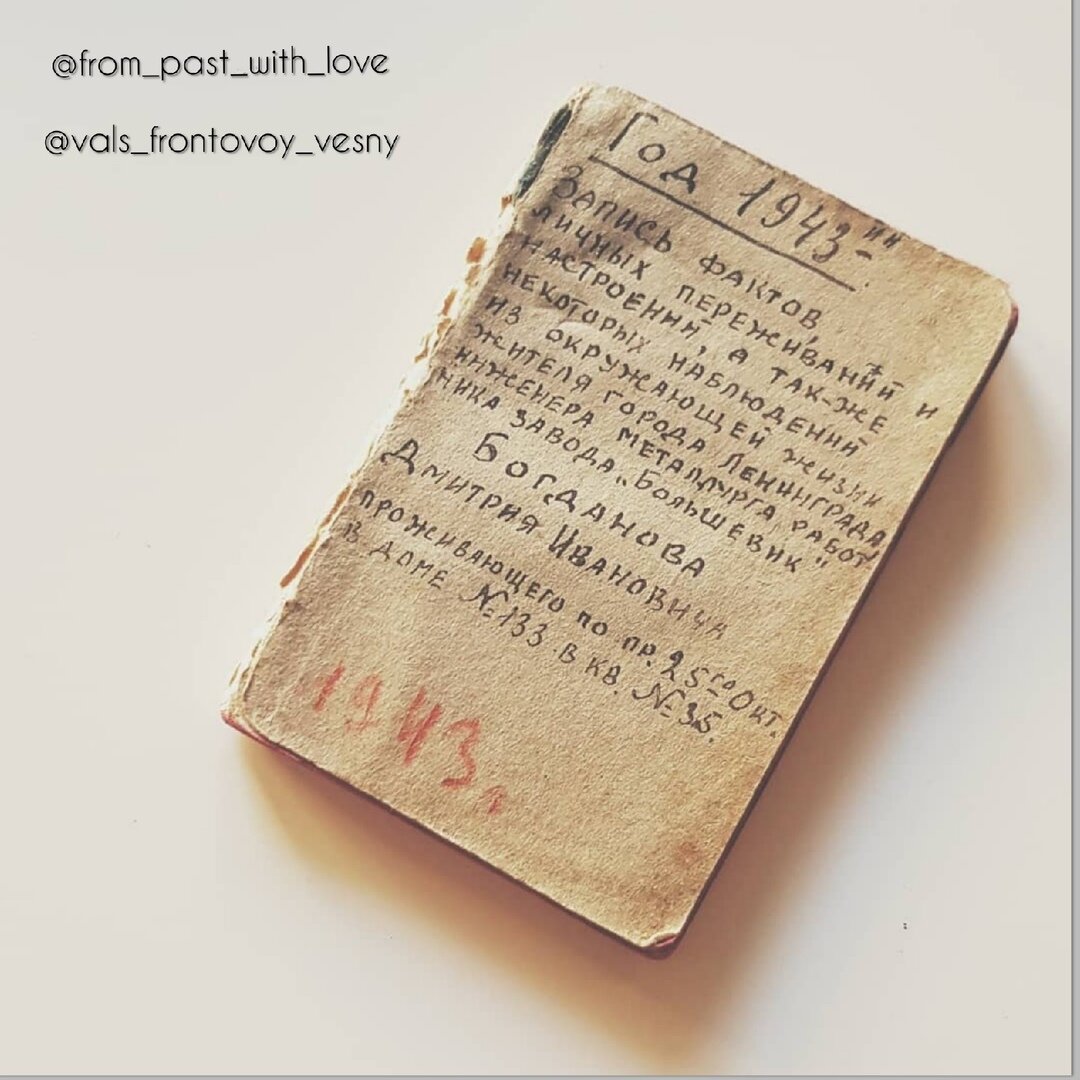 @from_past_with_love
@vals_frontovoy_vesny
Год 1943-"й"
Запись фактов,
личных переживаний и
настроений, а так-же
некоторых наблюдений
из окружающей жизни
жителя города Ленинграда
инженера металлурга работ
ника завода „Большевик"
Богданова
Дмитрия Ивановича
проживающего по пр. 25го Окт.
в доме №133 в кв. №35.
1943г